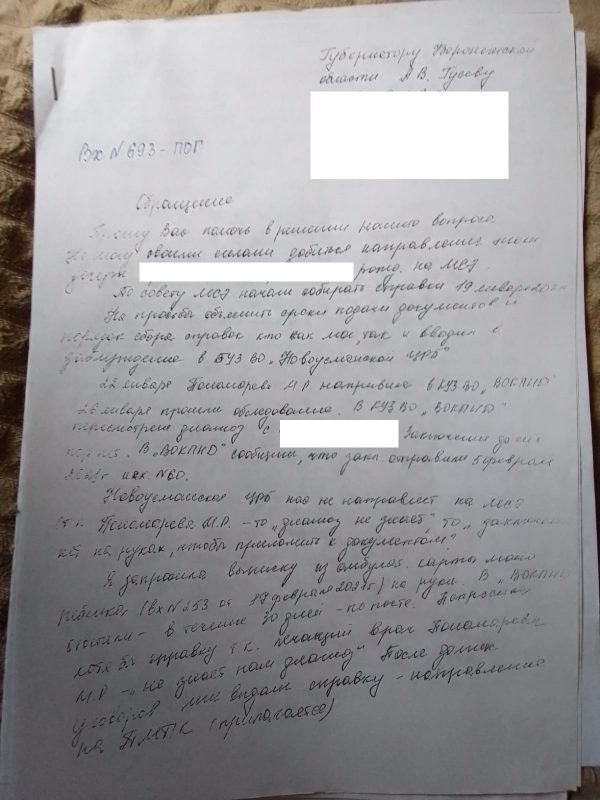 Губернатору Воронежской
области А.В. Гусеву
Вх N 693 - ПОГ
Обращение
Прошу Вас помочь в решении нашего вопроса.
Не могу своими силами добиться направление моей
дочери рожд. на МСЭ.
По совету МСЭ начали собирать справки 19 января
На просьба объяснить сроки подачи документов и
порядок сбора справок кто как мог, так и вводил в
заблуждение в БУЗ ВО „Новоусманской ЦРБ"
22 января Пономарева М.Р. направила в КУЗ ВО „ВОКПНД"
26 января прошли обследование. В КУЗ ВО „ВОКПНД"
пересмотрели диагноз с Заключения до сих
пор нет. В „ВОКПНД" сообщили, что закл. отправили 5 февраля
исх. N60.
Новоусманская ЦРБ нас не направляет на МСЭ
т.к. Пономарева М.Р. - то „диагноз не знает", то „заключения
нет на руках, чтобы приложить к документам"
Я запросила выписку из амбулат. карты моего
ребенка (вх N253 от 17 февраля 2021г) на руки. В „ВОКПНД
ответили - в течение 30 дней - по почте. Попросила
хотя бы справку т.к. лечащий врач Пономарева
М.Р - „не знает нам диагноз" После долгих
уговоров мне выдали справку - направление
на ПМПК (прилагается)